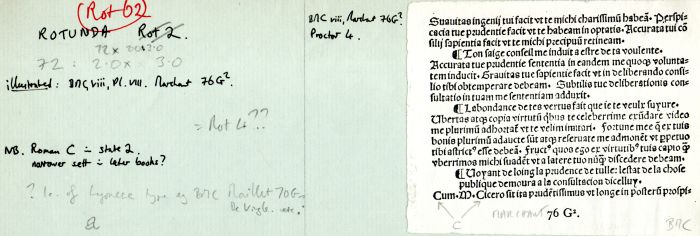 (Rot 62)
ROTUNDA Rot 2.
72 : 2.0 x 3.0
illustrated: BMC viii, Pl. VIII. Marchant 76G².
= Rot 4??
NB. Roman C ≏ state 2.
narrower sett ≏ later books?
? le. of Lyonese type eg BMC Maillet 70G.
De Vingle. etc.
BMC viii, Marchant 76G?
Proctor 4.
Suauitas ingenij tui facit vt te michi charissimũ habeã. Perspi-
cacia tue prudentie facit vt te habeam in optatio. Accurata tui cõ
silij sapientia facit vt te michi precipuũ retineam.
¶ Ton saige conseil me induit a estre de ta voulente.
Accurata tue prudentie sententia in eandem me quoqʒ volunta-
tem inducit. Grauitas tue sapientie facit vt in deliberando consi-
lio tibi obtemperare debeam. Subtilis tue deliberationis con-
sultatio in tuam me sententiam adduxit.
¶ Lebondance de tes vertus fait que ie te veulx suyure.
Ubertas atqʒ copia virtutũ
video
me plurimũ adhortat vt te velim imitari. Fortune meę q̃ ex tuis
bonis plurimũ adaucte sũt atqʒ reseruate me admonẽt vt ppetuo
tibi astrict⁹ esse debeã. Fruct⁹ quoqʒ ego ex virtutibꝰ tuis capio q̃
vberrimos michi suadẽt vt a latere tuo nũqʒ discedere debeam.
¶ Voyant de loing la prudence de tulle: lestat de la chose
publique demoura a la consultacion dicelluy.
Cum M. Cicero sit ita prudẽtissimus vt longe in posterũ prospis
C
MARCHANT 76 G².
BMC